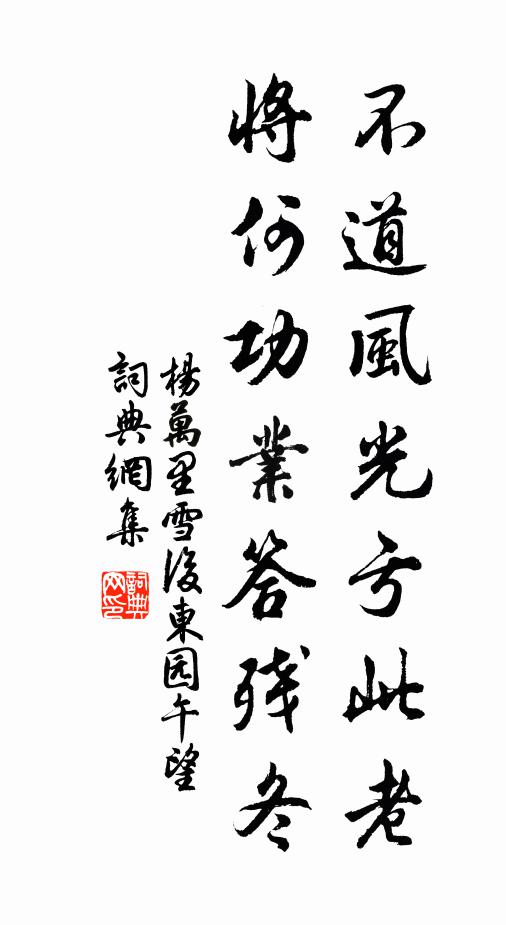 不道風光亏此老
將何功業答残冬
楊萬里雪後東园午望
詞典網集
詞典网印